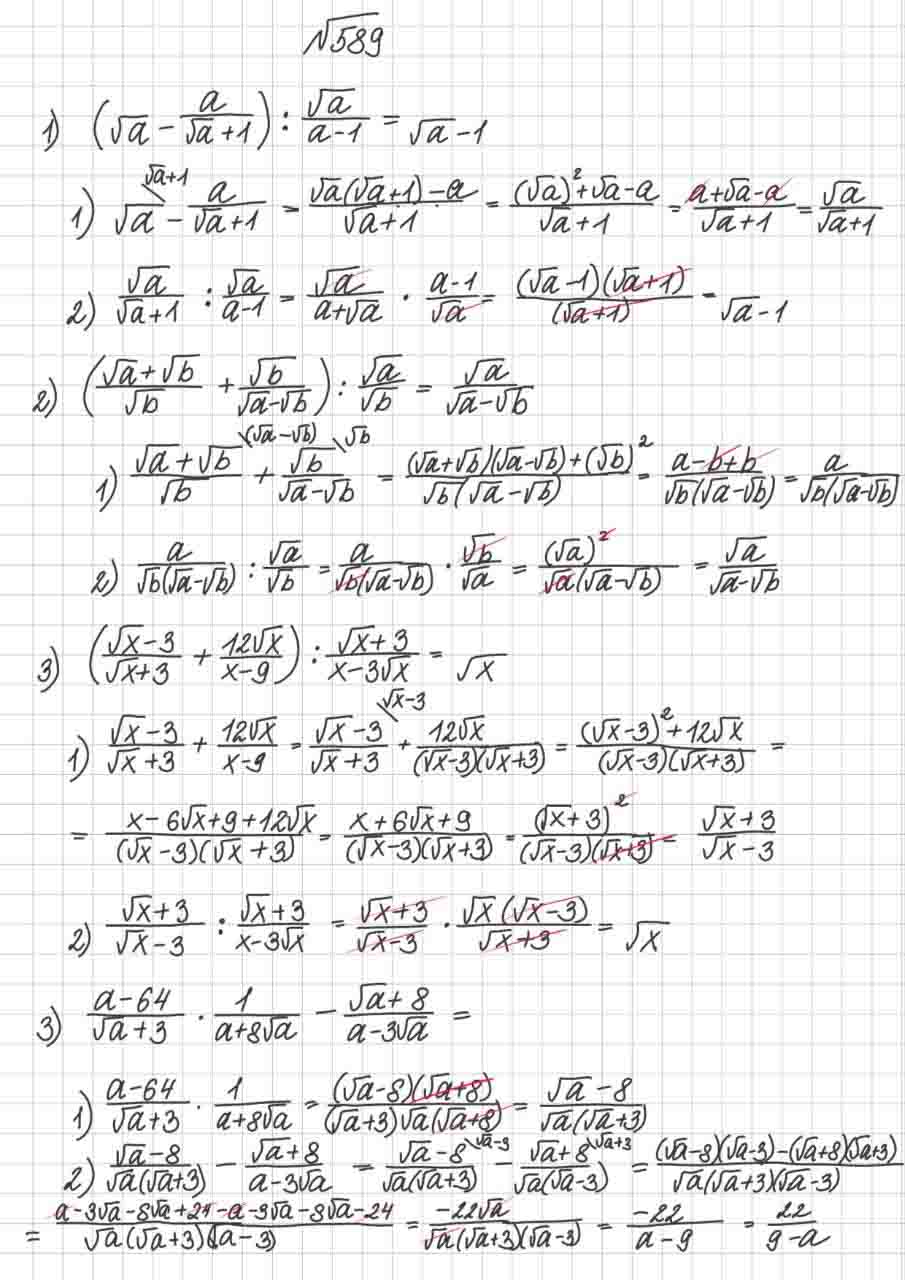 √589
1) (√a - a/(√a+1)) : √a/(a-1) = √a-1
1) √a^(\√a+1) - a/(√a+1) = (√a(√a+1)-a)/(√a+1) = ((√a)²+√a-a)/(√a+1) = (a+√a-a)/(√a+1) = √a/(√a+1)
2) √a/(√a+1) : √a/(a-1) = √a/(a+√a) · (a-1)/√a = ((√a-1)(√a+1))/(√a+1) = √a-1
2) ((√a+√b)/√b + √b/(√a-√b)) : √a/√b = √a/(√a-√b)
1) (√a+√b)/√b^(\(√a-√b)) + √b/(√a-√b)^(\√b) = ((√a+√b)(√a-√b)+(√b)²)/(√b(√a-√b)) = (a-b+b)/(√b(√a-√b)) = a/(√b(√a-√b))
2) a/(√b(√a-√b)) : √a/√b = a/(√b(√a-√b)) · √b/√a = (√a)²/(√a(√a-√b)) = √a/(√a-√b)
3) ((√x-3)/(√x+3) + 12√x/(x-9)) : (√x+3)/(x-3√x) = √x
1) (√x-3)/(√x+3) + 12√x/(x-9) = (√x-3)/(√x+3)^(\√x-3) + 12√x/((√x-3)(√x+3)) = ((√x-3)²+12√x)/((√x-3)(√x+3)) =
= (x-6√x+9+12√x)/((√x-3)(√x+3)) = (x+6√x+9)/((√x-3)(√x+3)) = (√x+3)²/((√x-3)(√x+3)) = (√x+3)/(√x-3)
2) (√x+3)/(√x-3) : (√x+3)/(x-3√x) = (√x+3)/(√x-3) · (√x(√x-3))/(√x+3) = √x
3) (a-64)/(√a+3) · 1/(a+8√a) - (√a+8)/(a-3√a) =
1) (a-64)/(√a+3) · 1/(a+8√a) = ((√a-8)(√a+8))/((√a+3)√a(√a+8)) = (√a-8)/(√a(√a+3))
2) (√a-8)/(√a(√a+3)) - (√a+8)/(a-3√a) = (√a-8)/(√a(√a+3))^(\√a-3) - (√a+8)/(√a(√a-3))^(\√a+3) = ((√a-8)(√a-3)-(√a+8)(√a+3))/(√a(√a+3)(√a-3))
= (a-3√a-8√a+24-a-3√a-8√a-24)/(√a(√a+3)(√a-3)) = -22√a/(√a(√a+3)(√a-3)) = -22/(a-9) = 22/(9-a)